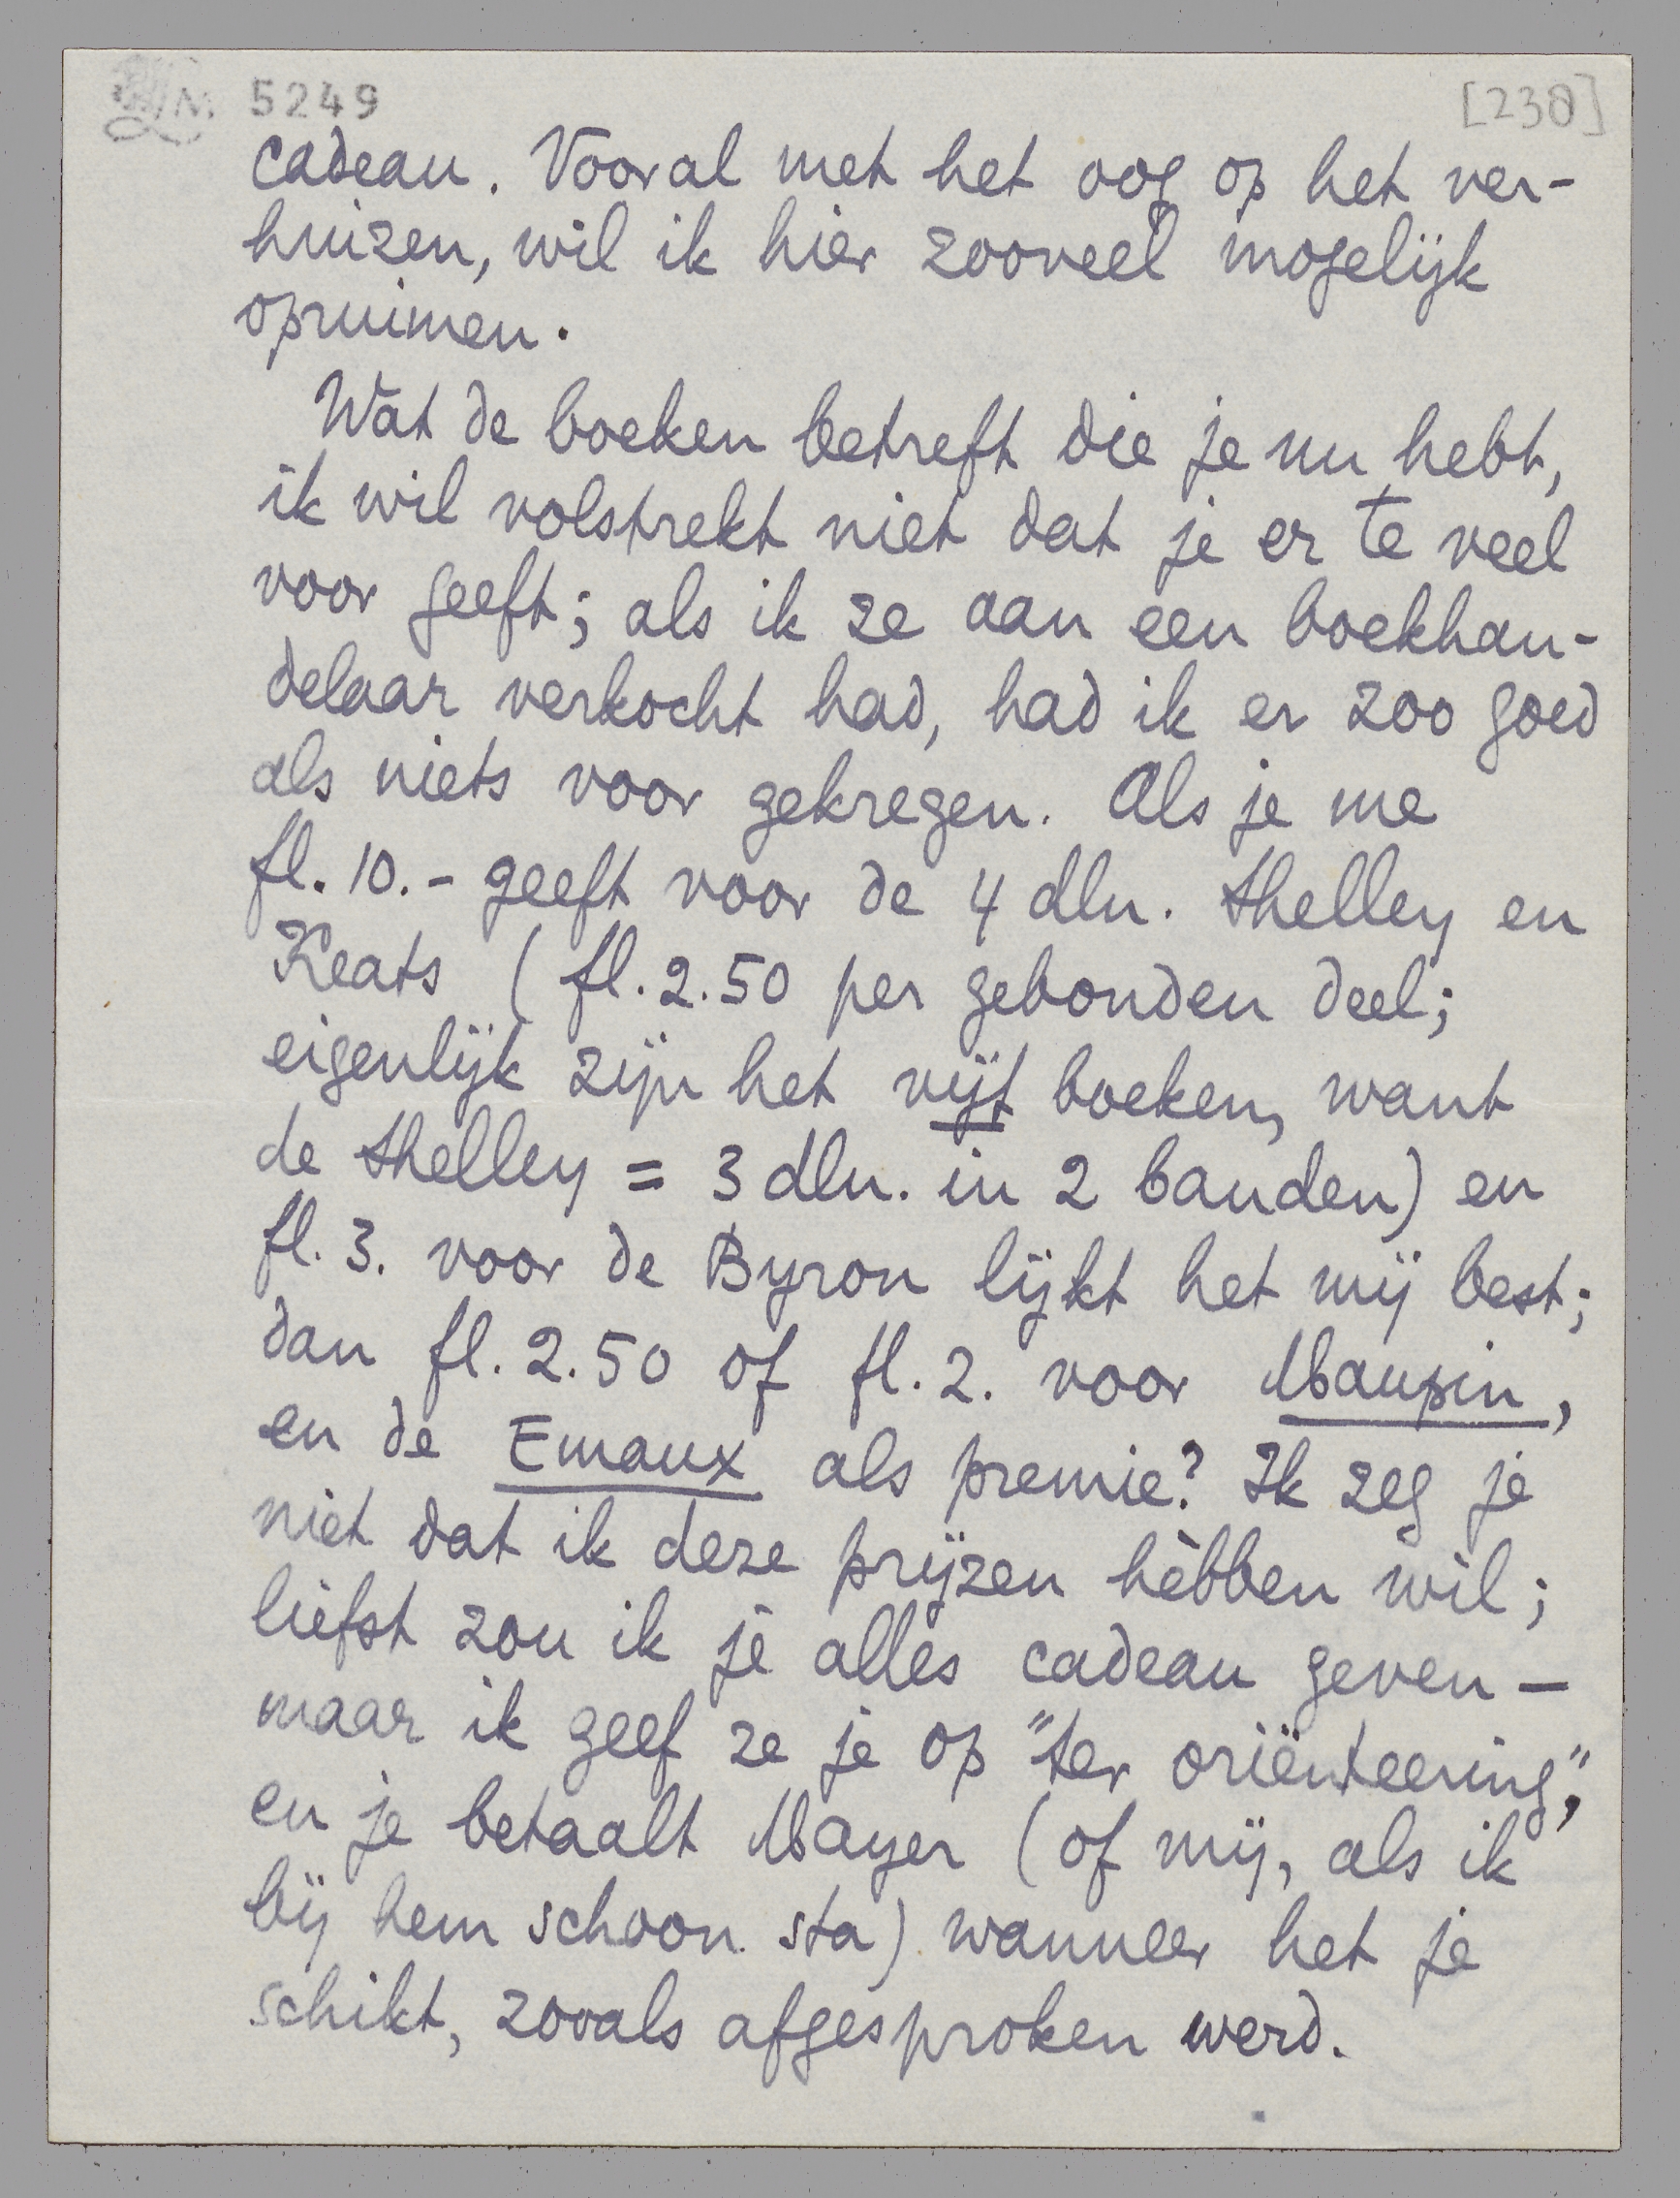 M. 5249 [238]
cadeau. Vooral met het oog op het ver-
huizen, wil ik hier zooveel mogelijk
opruimen.
Wat de boeken betreft die je nu hebt,
ik wil volstrekt niet dat je er te veel
voor geeft; als ik ze aan een boekhan-
delaar verkocht had, had ik er zoo goed
als niets voor gekregen. Als je me
fl. 10.- geeft voor de 4 dln. Shelley en
Keats (fl. 2.50 per gebonden deel;
eigenlijk zijn het vijf boeken, want
de Shelley = 3 dln. in 2 banden) en
fl. 3. voor de Byron lijkt het mij best;
dan fl. 2.50 of fl. 2. voor Maupin,
en de Emaux als premie? Ik zeg je
niet dat ik deze prijzen hèbben wil;
liefst zou ik je alles cadeau geven —
maar ik geef ze je op "ter oriënteering",
en je betaalt Mayer (of mij, als ik
bij hem schoon sta) wanneer het je
schikt, zooals afgesproken werd.